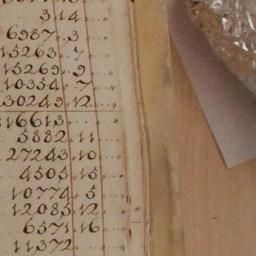 314
6987..3
15263..7
15269..9
10354..7
30249.12
16613...
5882.11
27243.10
4505.15
10774.5
12085.12
6571.16
11372